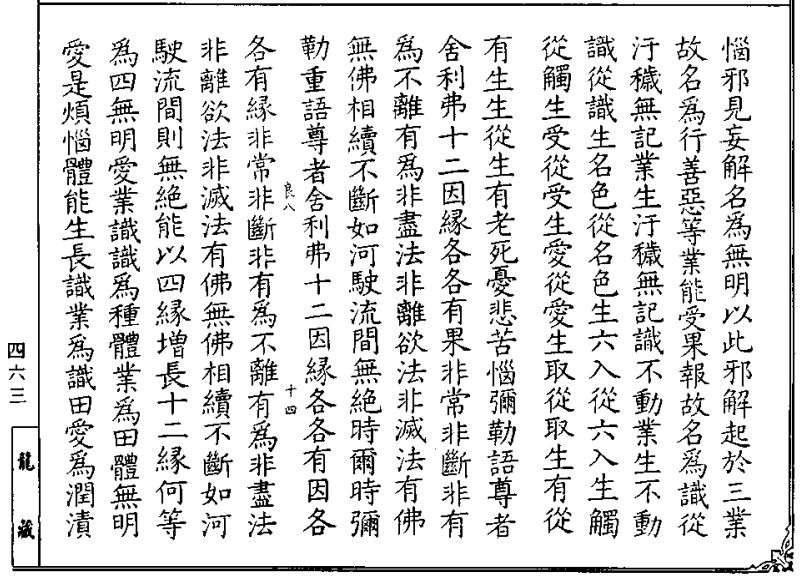 惱邪見妄解名為無明以此邪解起於三業
故名為行善惡等業能受果報故名為識從
汙穢無記業生汙穢無記識不動業生不動
識從識生名色從名色生六入從六入生觸
從觸生受從受生愛從愛生取從取生有從
有生生從生有老死憂悲苦惱彌勒語尊者
舍利弗十二因緣各各有果非常非斷非有
為不離有為非盡法非離欲法非滅法有佛
無佛相續不斷如河駛流間無絕時爾時彌
勒重語尊者舍利弗十二因緣各各有因各
良八
十四
各有緣非常非斷非有為不離有為非盡法
非離欲法非滅法有佛無佛相續不斷如河
駛流間則無絕能以四緣增長十二緣何等
為四無明愛業識識為種體業為田體無明
愛是煩惱體能生長識業為識田愛為潤漬
四六三
龍藏